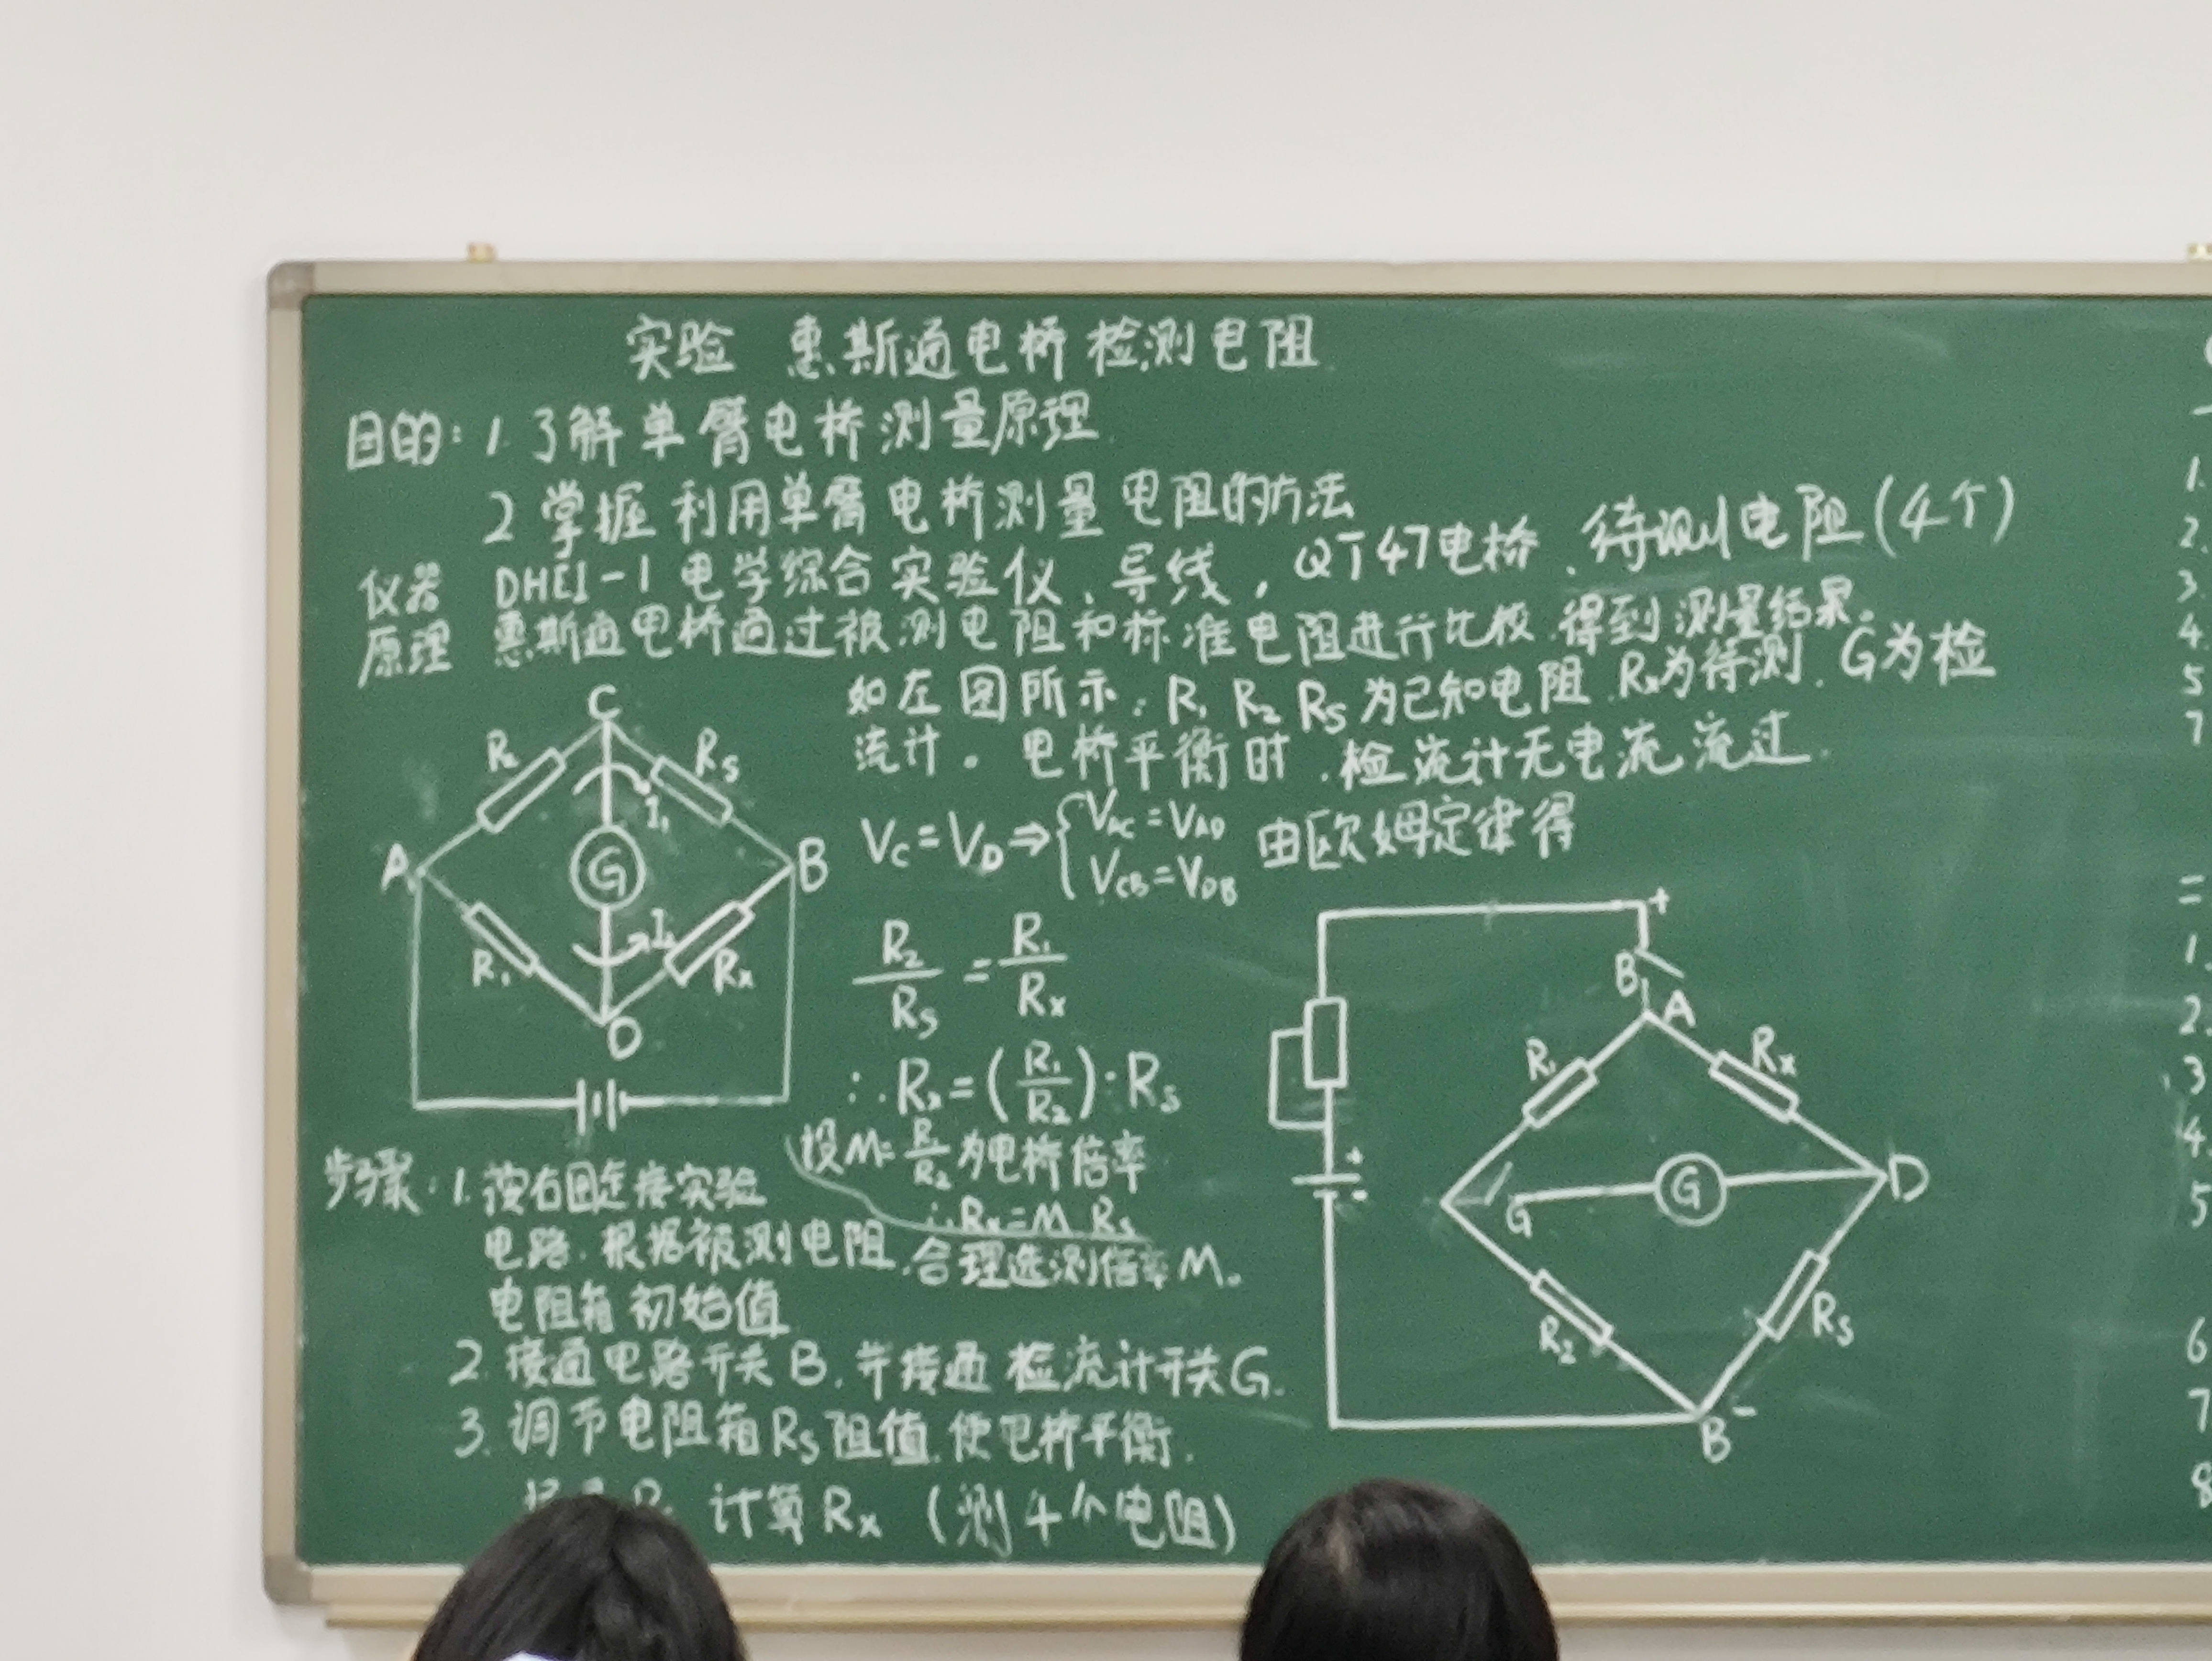 实验 惠斯通电桥检测电阻
目的: 1. 了解单臂电桥测量原理
2 掌握利用单臂电桥测量电阻的方法
仪器 DHE1-1 电学综合实验仪、导线, QJ47电桥、待测电阻(4个)
原理 惠斯通电桥通过被测电阻和标准电阻进行比较,得到测量结果。
如左图所示: R₁ R₂ Rs 为已知电阻, Rx为待测, G为检
流计。电桥平衡时,检流计无电流流过.
C
R₂
Rs
I₁
A
G
B
I₂
R₁
Rx
D
Vc = VD ⇒ { VAC = VAD
VCB = VDB
由欧姆定律得
R₂/Rs = R₁/Rx
∴ Rx = (R₁/R₂)·Rs
设M= R₁/R₂ 为电桥倍率
∴ Rx = M Rs
+
B
A
R₁
Rx
+
-
G
G
D
R₂
Rs
B -
步骤: 1. 按右图连接实验
电路,根据被测电阻,合理选测倍率M。
电阻箱初始值
2. 接通电路开关B,并接通检流计开关G.
3. 调节电阻箱Rs阻值,使电桥平衡.
计算Rx (测4个电阻)
1.
2.
3.
4.
5
7
二
1.
2.
3
4.
5
6
7
8